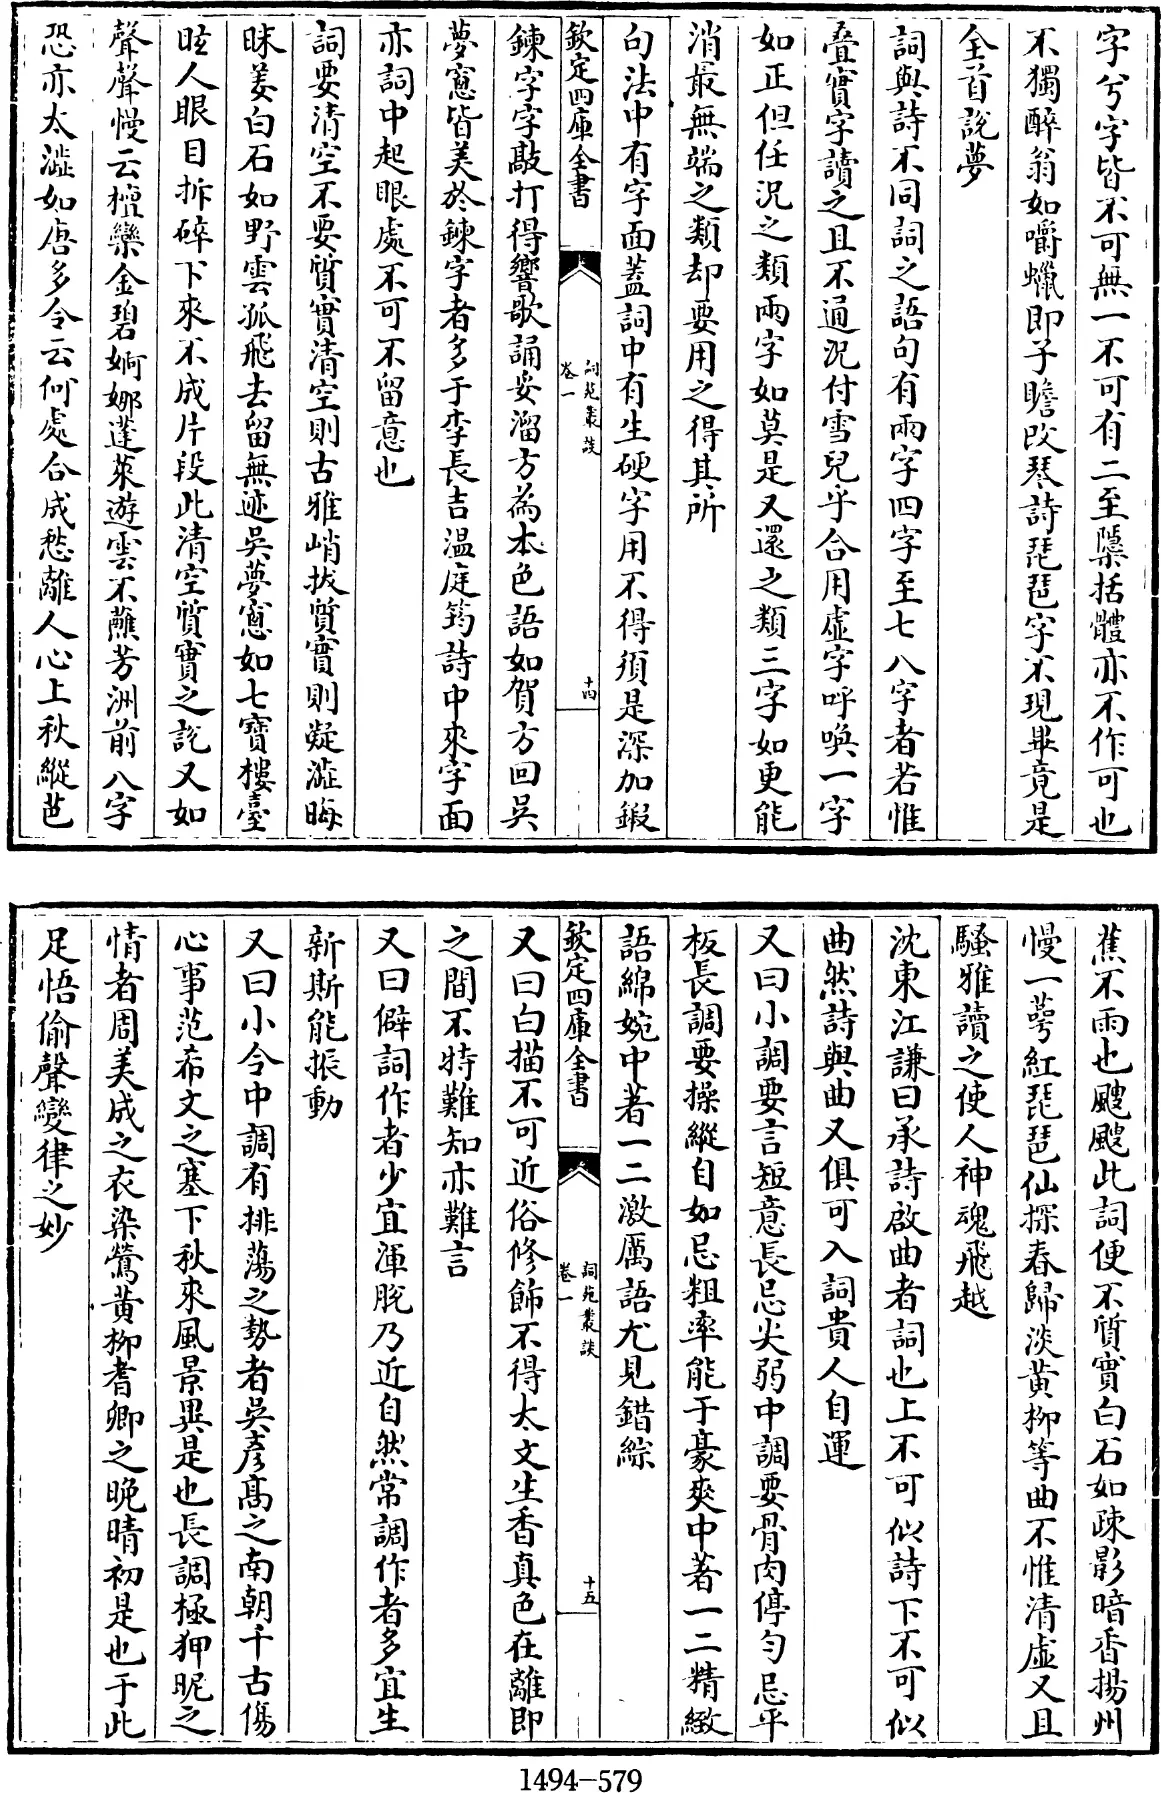 字兮字皆不可無一不可有二至檃括體亦不作可也
不獨醉翁如嚼蠟即子瞻改琴詩琵琶字不現畢竟是
全首說夢
詞與詩不同詞之語句有兩字四字至七八字者若惟
疊實字讀之且不通況付雪兒乎合用虛字呼喚一字
如正但任況之類兩字如莫是又還之類三字如更能
消最無端之類却要用之得其所
句法中有字面蓋詞中有生硬字用不得須是深加鍜
欽定四庫全書
詞苑叢談
卷一
十四
鍊字字敲打得響歌誦妥溜方為本色語如賀方回吳
夢窻皆美於鍊字者多于李長吉温庭筠詩中來字面
亦詞中起眼處不可不留意也
詞要清空不要質實清空則古雅峭拔質實則凝澁晦
昧姜白石如野雲孤飛去留無迹吳夢窻如七寶樓臺
眩人眼目拆碎下來不成片段此清空質實之說又如
聲聲慢云檀欒金碧婀娜蓬萊遊雲不蘸芳洲前八字
恐亦太澁如唐多令云何處合成愁離人心上秋縱芭
蕉不雨也颼颼此詞便不質實白石如疎影暗香揚州
慢一蕚紅琵琶仙探春歸淡黄柳等曲不惟清虛又且
騷雅讀之使人神魂飛越
沈東江謙曰承詩啟曲者詞也上不可似詩下不可似
曲然詩與曲又俱可入詞貴人自運
又曰小調要言短意長忌尖弱中調要骨肉停勻忌平
板長調要操縱自如忌粗率能于豪爽中著一二精緻
語綿婉中著一二激厲語尤見錯綜
欽定四庫全書
詞苑叢談
卷一
十五
又曰白描不可近俗修飾不得太文生香真色在離即
之間不特難知亦難言
又曰僻詞作者少宜渾脫乃近自然常調作者多宜生
新斯能振動
又曰小令中調有排蕩之勢者吳彥髙之南朝千古傷
心事范希文之塞下秋來風景異是也長調極狎昵之
情者周美成之衣染鶯黄柳耆卿之晚晴初是也于此
足悟偷聲變律之妙
1494-579